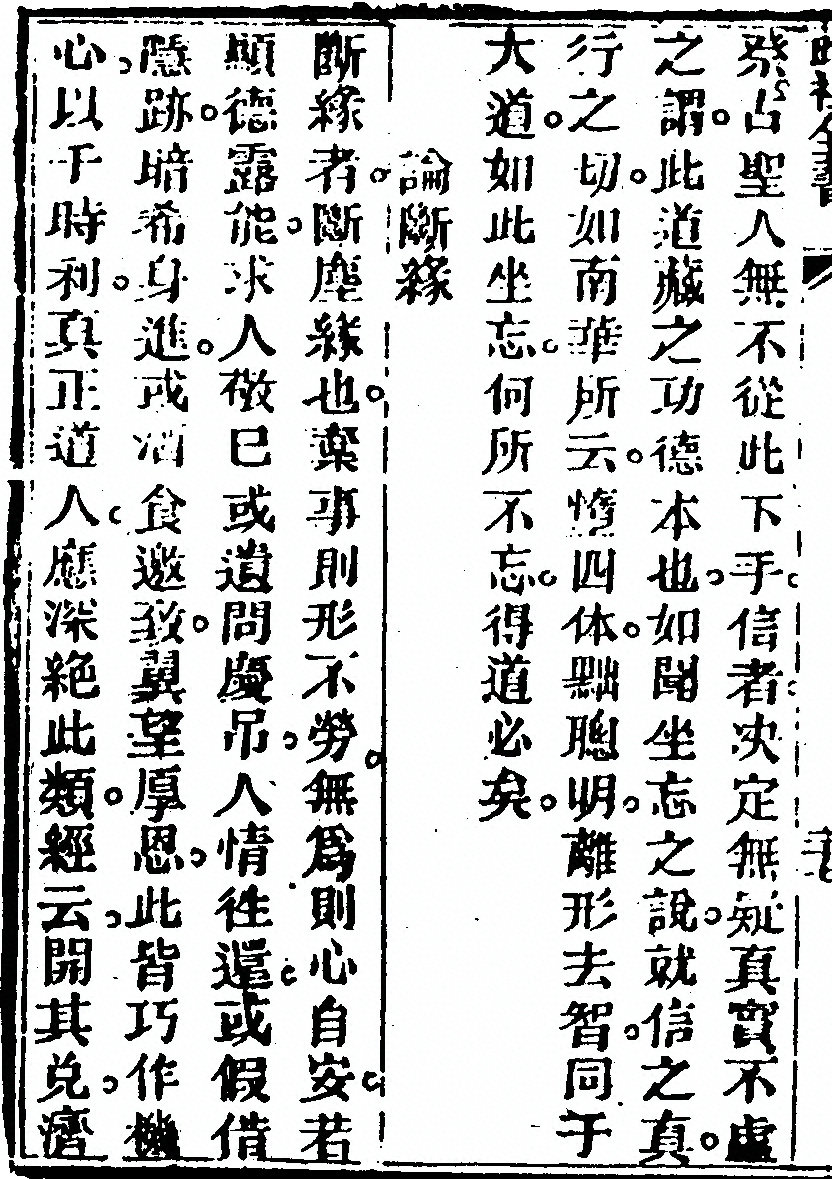 癸占聖人無不從此下手信者決定無疑真實不虛
之謂此道藏之功德本也如聞坐忘之說就信之真
行之切如南華所云惰四体黜聰明離形去智同于
大道如此坐忘何所不忘得道必矣
論斷緣
斷緣者斷塵緣也棄事則形不勞無爲則心自安若
顯德露能求人敬巳或遺問慶吊人情徃還或假借
隱跡暗希身進或酒食邀致翼望厚恩此皆巧作機
心以干時利真正道人應深絕此類經云開其兌濟